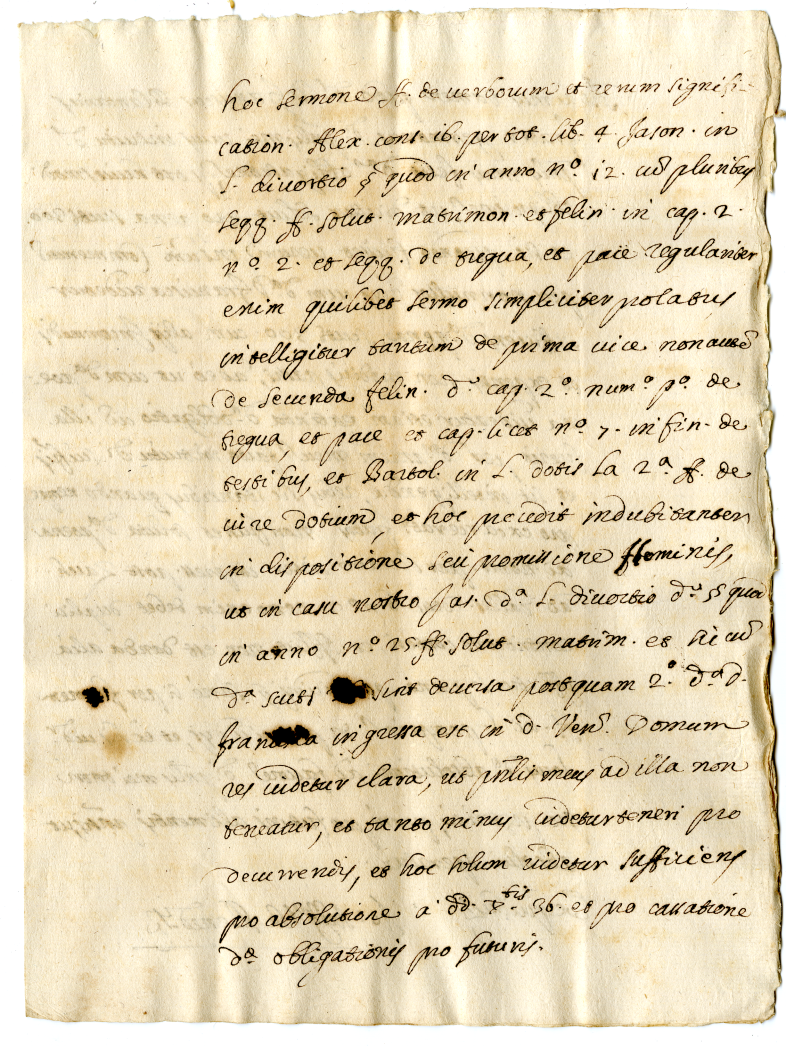 hoc sermone ff. de verborum et rerum signifi-
cation. Alex. cons. 16. per tot. lib. 4 Jason. in
L. divortio § quod in anno n.º 12. cũ pluribus
seqq. ff. solut. matrimon. et felin. in cap. 2.
n.º 2. et seqq. de tregua, et pace regulariter
enim quilibet sermo simpliciter prolatus
intelligitur tantum de prima vice non autẽ
de secunda felin. d.º cap. 2.º num.º p.º de
tregua, et pace et cap. licet n.º 7. in fin. de
testibus, et Bartol. in L. dotis la 2.ª ff. de
iure dotium, et hoc procedit indubitanter
in dispositione seu promissione hominis,
ut in casu nostro Jas. d.ª L. divortio d.º § quod
in anno n.º 25. ff. solut. matrim. et sic cũ
d.ª scuti sint decursa postquam 2.º d.ª d.
francisca ingressa est in d. Ven. Domum
res videtur clara, ut prĩlis meus ad illa non
teneatur, et tanto minus videtur teneri pro
decurrendis, et hoc solum videtur sufficiens
pro absolutione a dd. 36. et pro cassatione
d.ª obligationis pro futuris.